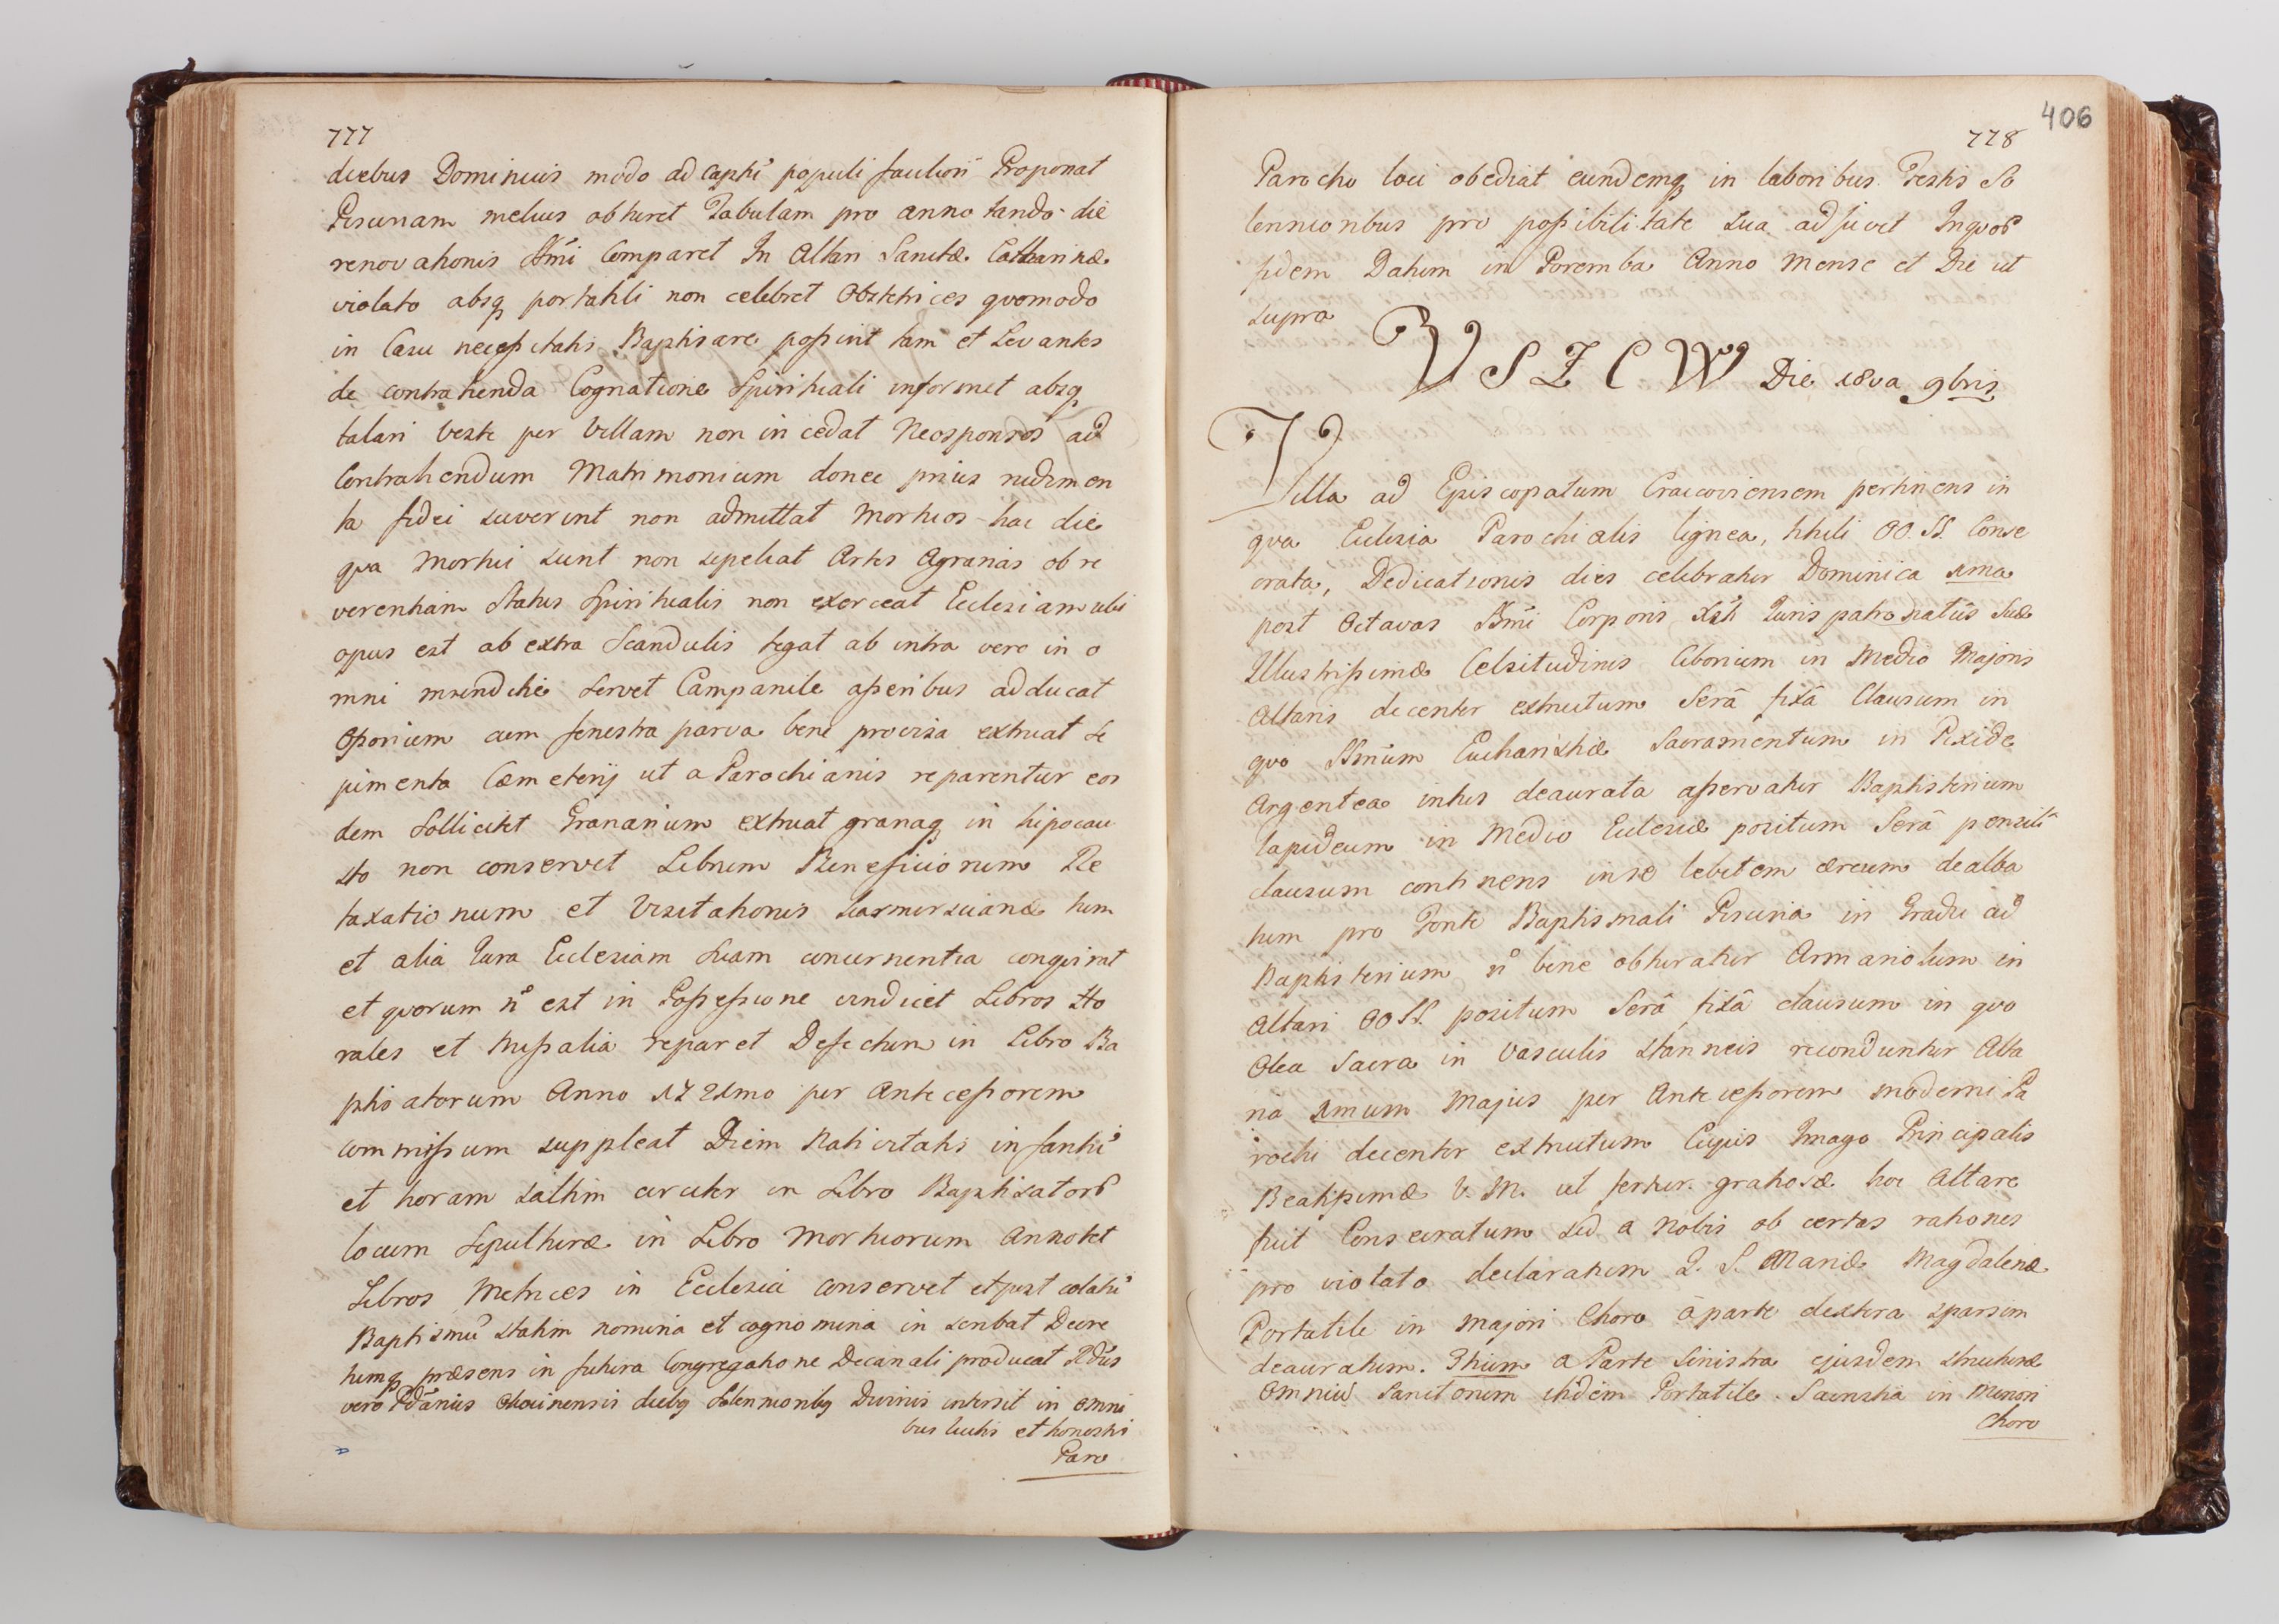 777
diebus Dominicis modo ad captũ populi faciliori Proponat
Piscinam melius obturet Tabulam pro annotando die
renovationis SSmi Comparet In Altari Sanctæ Catharinæ
violato absq portatili non celebret Obstetrices quomodo
in Casu necessitatis Baptisare possint tam et Levantes
de contrahenda Cognatione Spirituali informet absq
talari veste per Villam non incedat Neosponsos ad
Contrahendum Matrimonium donec prius rudimen
ta fidei sciverint non admittat Mortuos hac die
qua mortui sunt non sepeliat Artes Agrarias ob re
verentiam Status Spiritualis non exerceat Ecclesiam ubi
opus est ab extra Scandulis tegat ab intra vero in o
mni munditie Servet Campanile asseribus adducat
Ossorium cum fenestra parva bene provisa extruat Se
pimenta Cæmeterij ut a Parochianis reparentur eos
dem Sollicitet Granarium extruat granaq in hipocau
sto non conservet Librum Beneficiorum Re
taxationum et Visitationis tum
et alia Iura Ecclesiam Suam concernentia conquirat
et quorum n̊ est in Possessione vindicet Libros Ho
rales et Missalia reparet Defectum in Libro Ba
ptisatorum Anno 1721mo per Antecessorem
commissum suppleat Diem Nativitatis infantiũ
et horam saltim circiter in Libro Baptisatorũ
locum Sepulturæ in Libro Mortuorum Annotet
Libros Metrices in Ecclesia conservet et post colatũ
Baptismũ statim nomina et cognomina inscribat Decre
tumq præsens in futura Congregatione Decanali producat Rdus
vero diebq Solennioribq Divinis intersit in omni
bus licitis et honestis
Paro
406
778
Parocho loci obediat eundemq in laboribus Festis So
lennioribus pro possibilitate sua adjuvet Inquorũ
fidem Datum in Poremba Anno Mense et Die ut
supra
VSZCW Die 18va 9bris
Villa ad Episcopatum Cracoviensem pertinens in
qua Ecclesia Parochialis lignea, tituli OO. SS. Conse
crata, Dedicationis dies celebratur Dominica 1ma
post Octavas SSmi Corporis Xsti Iuris patronatûs Suæ
Illustrissimæ Celsitudinis Ciborium in Medio Majoris
Altaris decenter extructum Serâ fixâ Clausum in
quo SSmum Eucharistiæ Sacramentum in Pixide
Argentea intus deaurata asservatur Baptisterium
lapideum in Medio Ecclesiæ positum Serâ pensili
clausum continens in se lebetem æreum dealba
tum pro Fonte Baptismali Piscina in Gradu ad
Baptisterium n̊ bene obturatur Armariolum in
Altari OO SS. positum Serâ fixâ clausum in quo
Olea Sacra in vasculis stanneis reconduntur Alta
ria 1mum Majus per Antecessorem moderni Pa
rochi decenter extructum Cujus Imago Principalis
Beatissimæ V. M. ut fertur gratiosæ hoc Altare
fuit Consecratum sed a nobis ob certas rationes
pro violato declaratum 2. S. Mariæ Magdalenæ
Portatile in majori Choro a parte dextera sparsim
deauratum. 3tium a Parte Sinistra ejusdem structuræ
Omniũ Sanctorum itidem Portatile. Sacristia in Minori
Choro